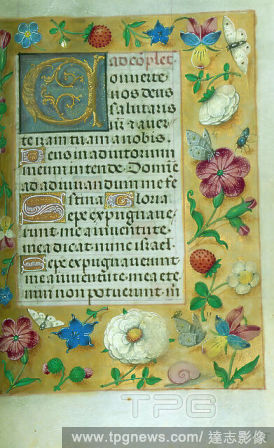 ad cōplet
Conuerte
nos deus
salutaris
n̄r ̄ & auer
te iram tuam a nobis.
Deus in adiutorium
meum intende. Domine
ad adiuuandum me fe
stina. Gloria
Sepe expugnaue
runt me a iuuentute
mea dicat nunc israel.
Sepe expugnauerunt
me a iuuentute mea ete
nim non potuerunt m
TPG
www.tpgnews.com/ 達志影像